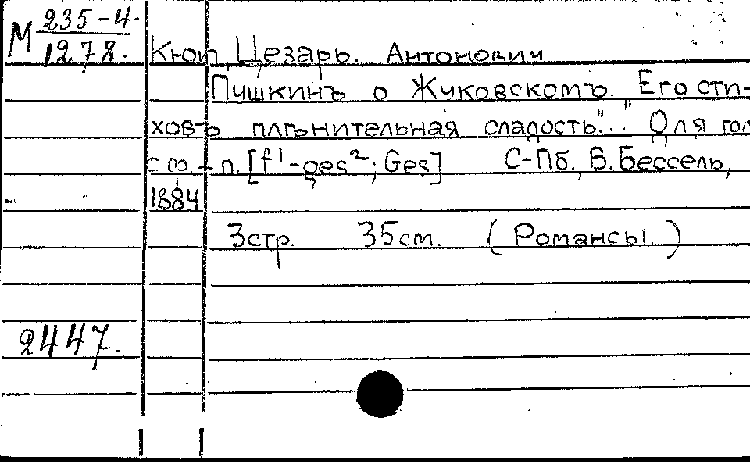 М 235-4.
1278. Кюи, Цезарь. Антонович
Пушкинъ о Жуковскомъ. Его сти-
ховъ плѣнительная сладость"... Для гол
с ф.-п. [f¹-ges²; Ges] С-Пб., В. Бессель,
1884
3стр. 35см. (Романсы)
2447.